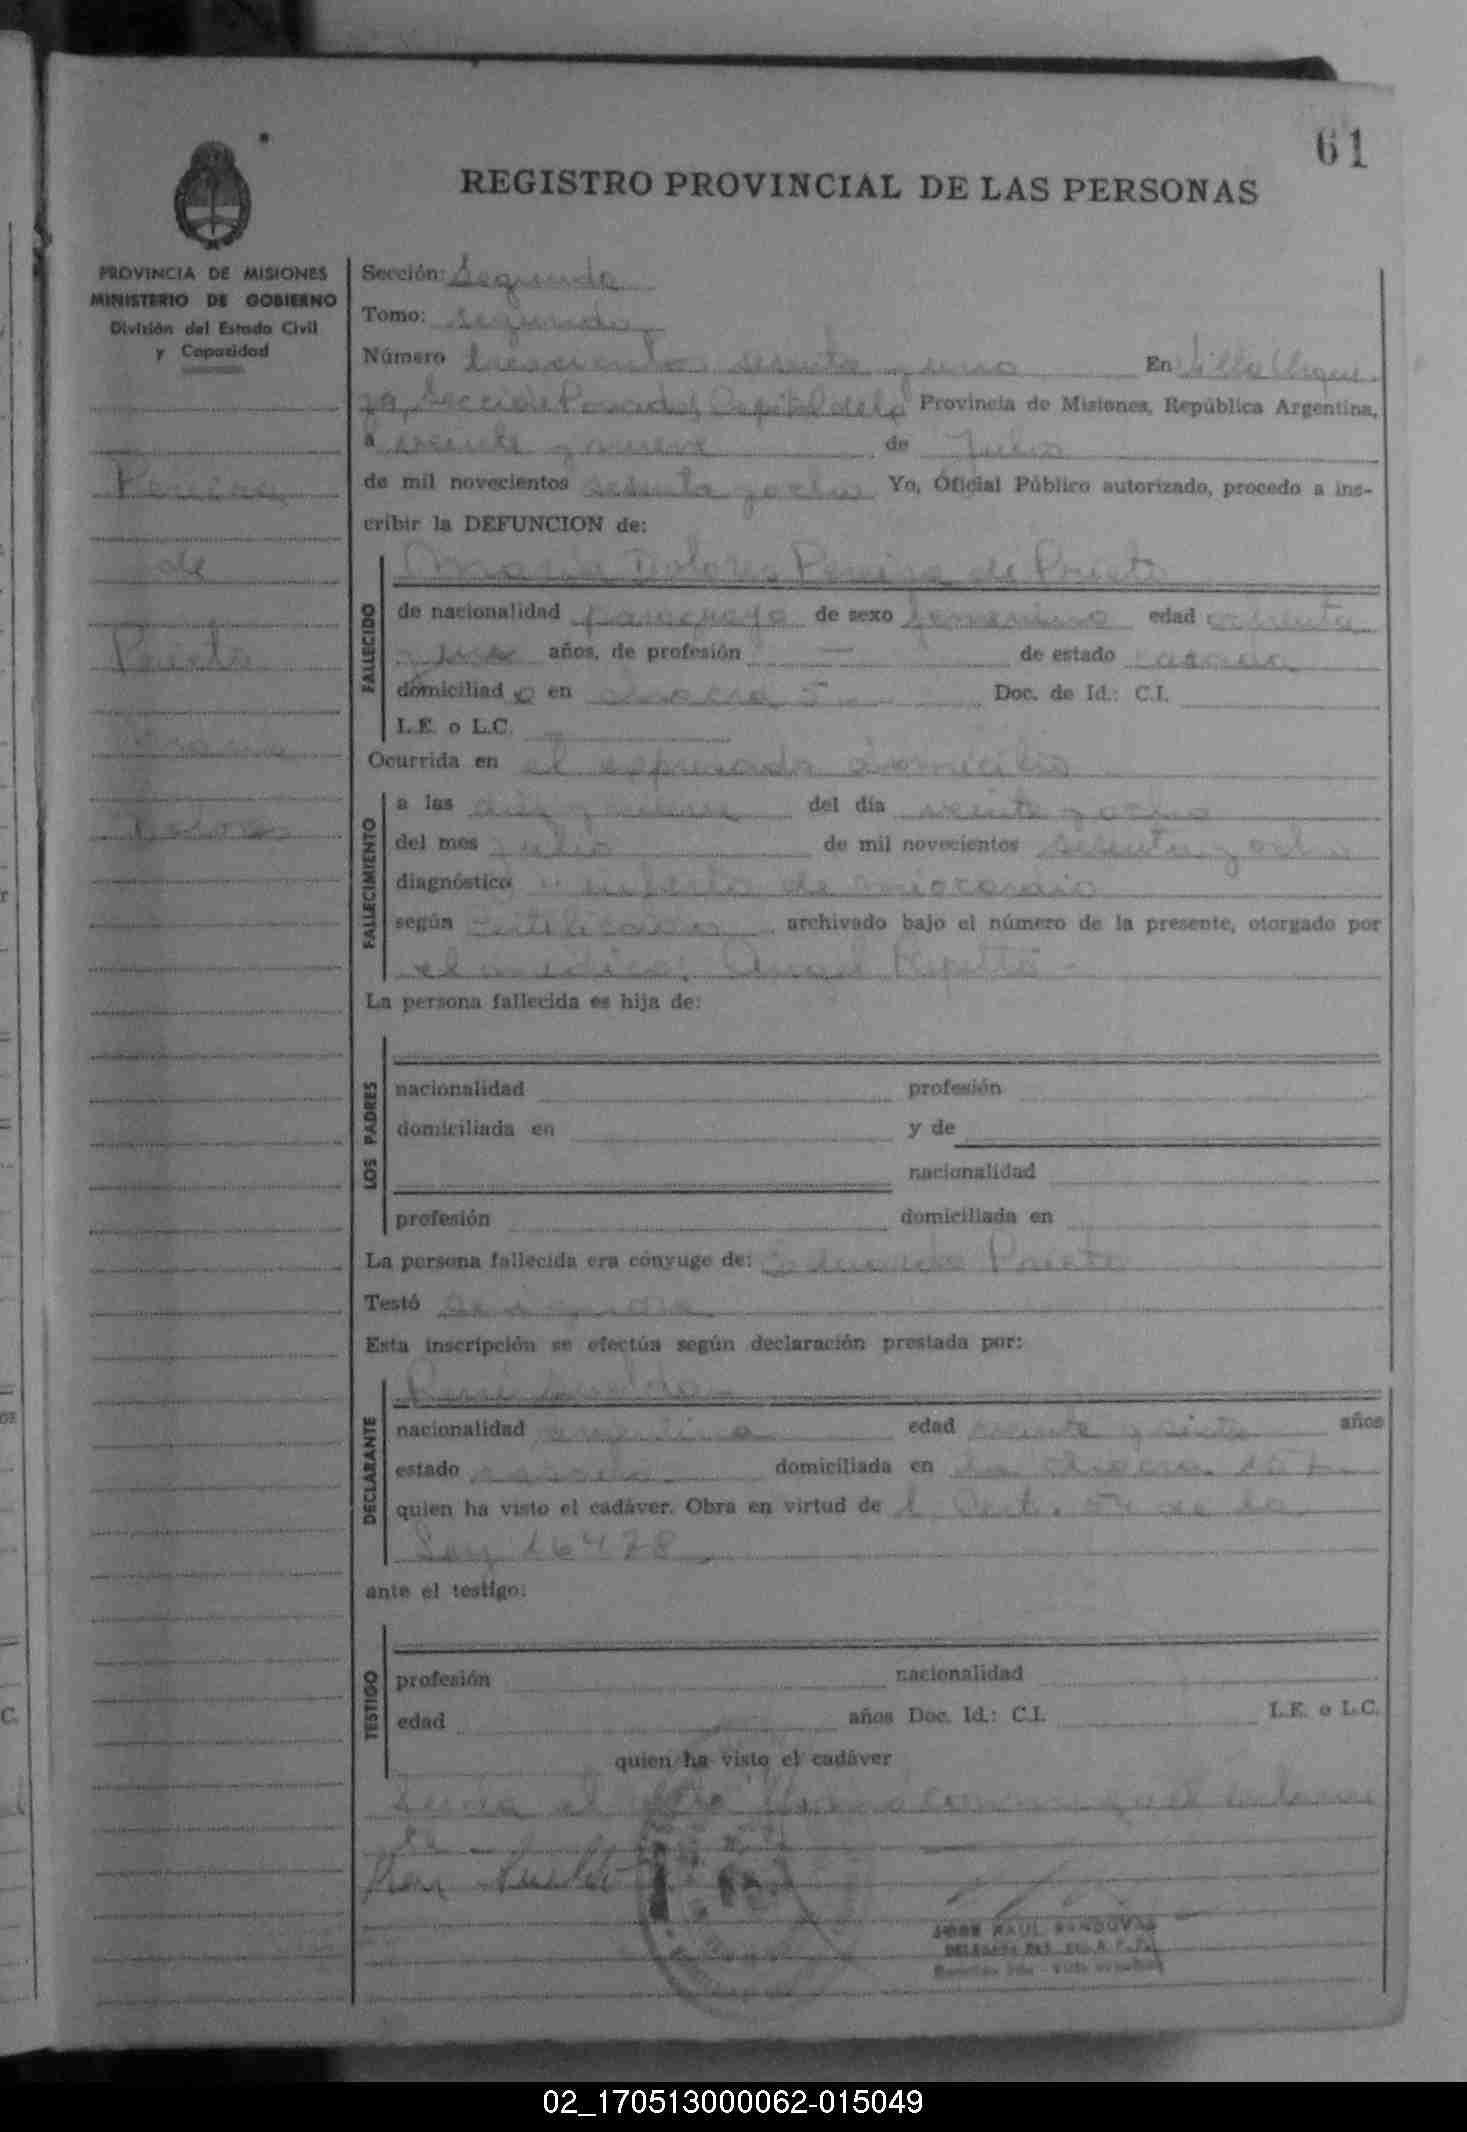 61
REGISTRO PROVINCIAL DE LAS PERSONAS
PROVINCIA DE MISIONES
MINISTERIO DE GOBIERNO
División del Estado Civil
y Capacidad
Pereira
de
Prieto
María
Dolores
Sección: Segunda
Tomo: segundo
Número trescientos sesenta y uno En Villa Urqui-
za, Secc. de Posadas, Capital de la Provincia de Misiones, República Argentina,
a veinte y nueve de Julio
de mil novecientos sesenta y ocho Yo, Oficial Público autorizado, procedo a ins-
cribir la DEFUNCION de:
María Dolores Pereira de Prieto
FALLECIDO
de nacionalidad paraguaya de sexo femenino edad ochenta
y años, de profesión — de estado casada
domiciliad a en chacra 5 Doc. de Id.: C.I.
L.E. o L.C.
Ocurrida en el expresado domicilio
FALLECIMIENTO
a las diez y nueve del día veinte y ocho
del mes julio de mil novecientos sesenta y ocho
diagnóstico infarto de miocardio
según certificado archivado bajo el número de la presente, otorgado por
el médico, Repetto
La persona fallecida es hija de:
LOS PADRES
nacionalidad profesión
domiciliada en y de
nacionalidad
profesión domiciliada en
La persona fallecida era cónyuge de: Eduardo Prieto
Testó se ignora
Esta inscripción se efectúa según declaración prestada por:
DECLARANTE
René
nacionalidad argentina edad veinte y siete años
estado casado domiciliada en la chacra
quien ha visto el cadáver. Obra en virtud de l Art. 54 de la
Ley 16478
ante el testigo:
TESTIGO
profesión nacionalidad
edad años Doc. Id.: C.I. L.E. o L.C.
quien ha visto el cadáver
Leida el acta firma conmigo el declaran-
te
JOSE RAUL SANDOVAL
02_170513000062-015049